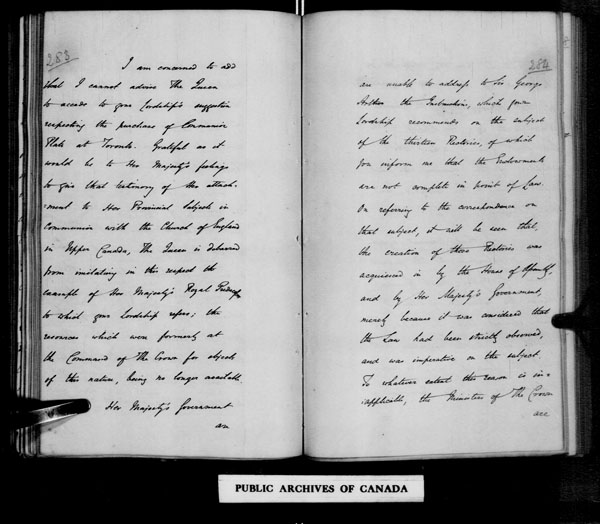 283
I am concerned to add
that I cannot advise The Queen
to accede to your Lordship's suggestion
respecting the purchase of Communion
Plate at Toronto. Grateful as it
would be to Her Majesty's feelings
to give that testimony of Her attach-
-ment to Her Provincial Subjects in
Communion with the Church of England
in Upper Canada, The Queen is debarred
from imitating in this respect the
example of Her Majesty's Royal
to which your Lordship refers; the
resources which were formerly at
the Command of The Crown for objects
of this nature, being no longer available.
Her Majesty's Government
are
284
are unable to address to Sir George
Arthur the Instructions, which your
Lordship recommends on the subject
of the thirteen Rectories, of which
you inform me that the Endowments
are not complete in point of Law.
On referring to the correspondence on
that subject, it will be seen that,
the creation of these Rectories was
acquiesced in by the House of Assembly,
and by Her Majesty's Government,
merely because it was considered that
the Law had been strictly observed,
and was imperative on the subject.
To whatever extent this reason is in=
applicable, the Ministers of The Crown
are
PUBLIC ARCHIVES OF CANADA